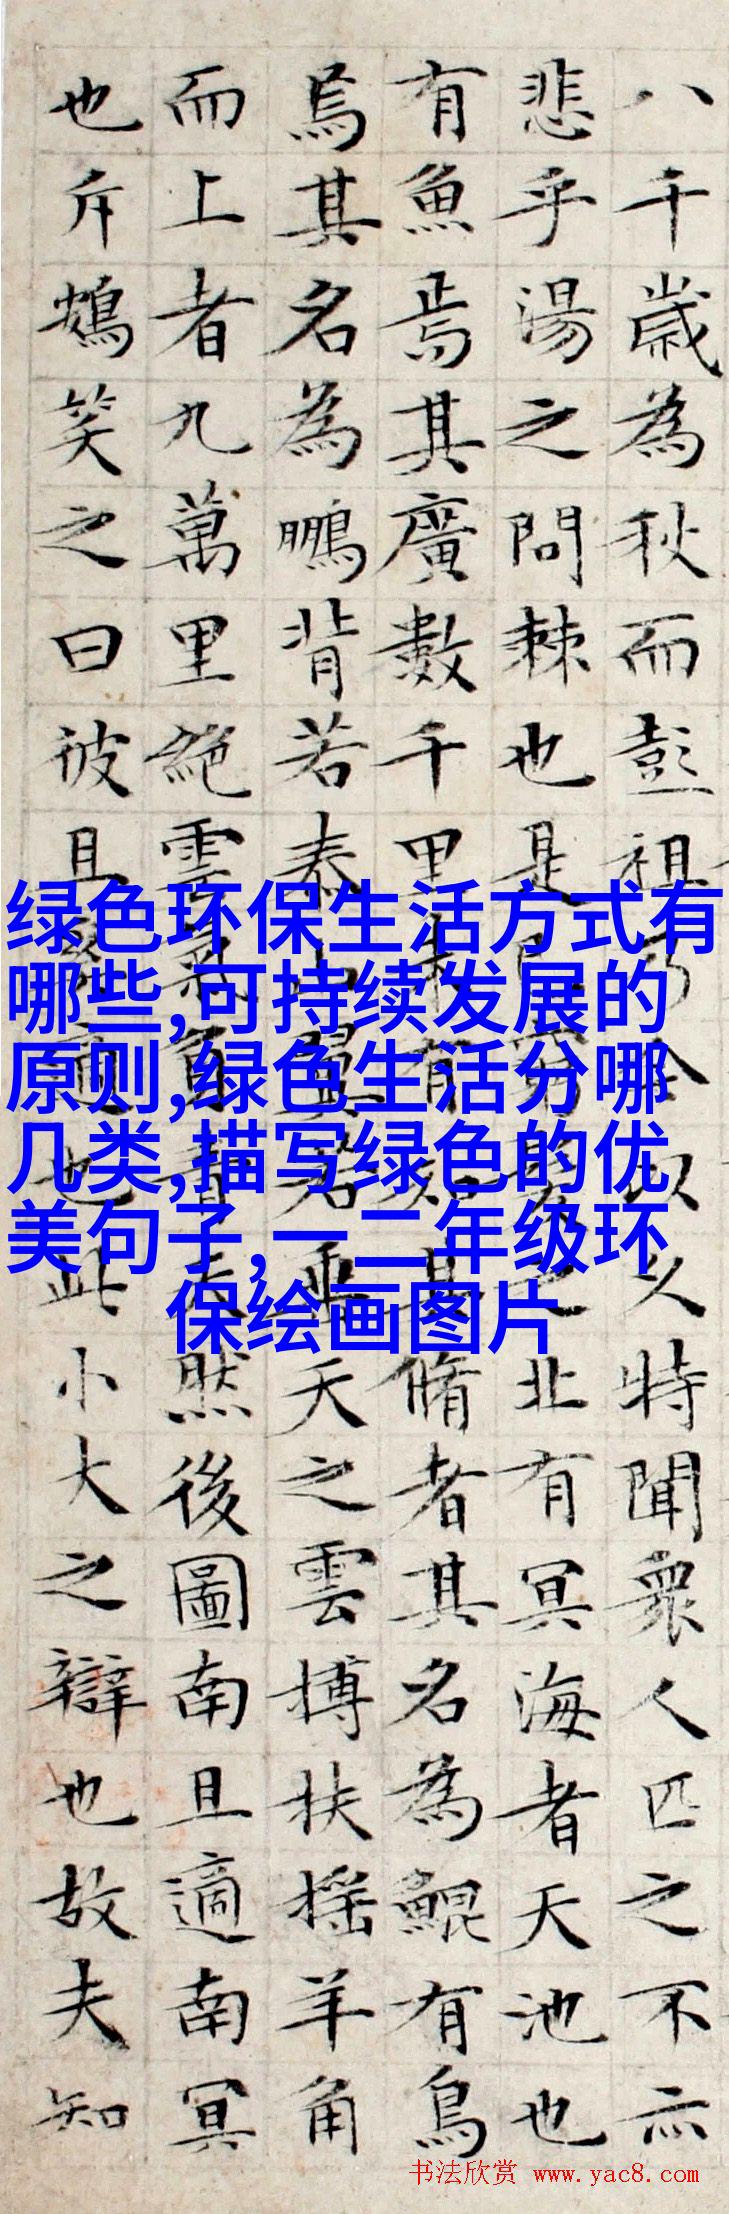 八千歲為秋而彭祖乃今以久特聞衆人匹之不亦
悲乎湯之問棘也是已窮髮之北有冥海者天池也
有魚焉其廣數千里未有知其脩者其名為鯤有鳥
焉其名為鵬背若泰山翼若垂天之雲摶扶摇羊角
而上者九萬里絶雲氣負青天然後圖南且適南冥
也斥鴳笑之曰彼且奚適也此小大之辯也故夫知
绿色环保生活方式有
哪些,可持续发展的
原则,绿色生活分哪
几类,描写绿色的优
美句子,一二年级环
保绘画图片
书法欣赏 www.yac8.com